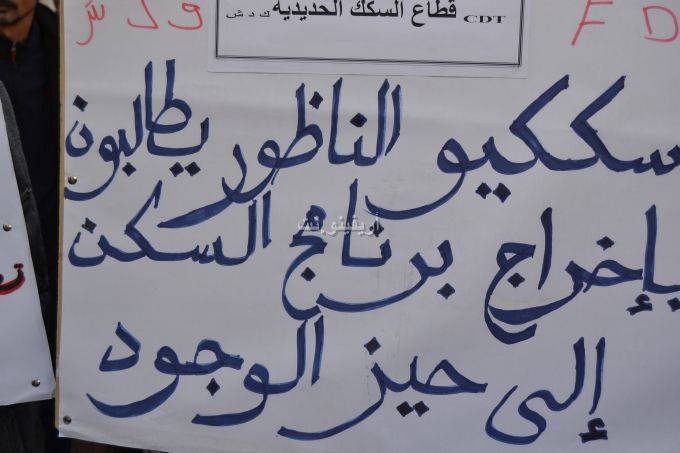 قطاع السكك الحديدية ك د ش CDT
F D
ف د ش
سككيو الناظور يطالبون
بإخراج برنامج السكن
إلى حيز الوجود
أريفينو.نت